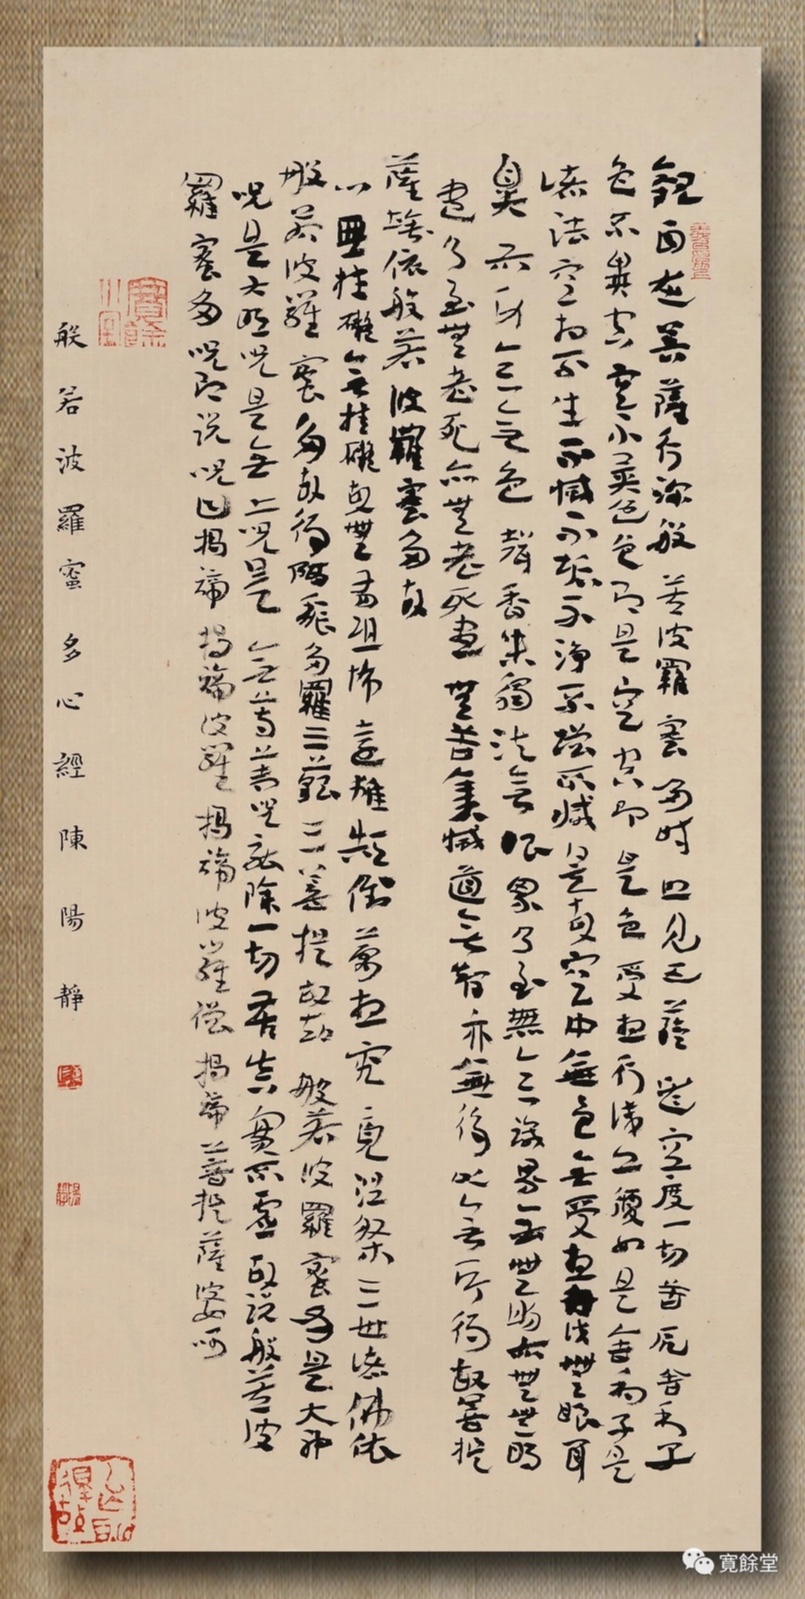 觀自在菩薩行深般若波羅蜜多時照見五蘊皆空度一切苦厄舍利子
色不異空空不異色色即是空空即是色受想行識亦復如是舍利子是
諸法空相不生不滅不垢不淨不增不減是故空中無色無受想行識無眼耳
鼻舌身意無色聲香味觸法無眼界乃至無意識界無無明亦無無明
盡乃至無老死亦無老死盡無苦集滅道無智亦無得以無所得故菩提
薩埵依般若波羅蜜多故
心無挂礙無挂礙故無有恐怖遠離顛倒夢想究竟涅槃三世諸佛依
般若波羅蜜多故得阿耨多羅三藐三菩提故知般若波羅蜜多是大神
咒是大明咒是無上咒是無等等咒能除一切苦真實不虛故說般若波
羅蜜多咒即說咒曰揭諦揭諦波羅揭諦波羅僧揭諦菩提薩婆訶
般若波羅蜜多心經陳陽靜
寬餘堂